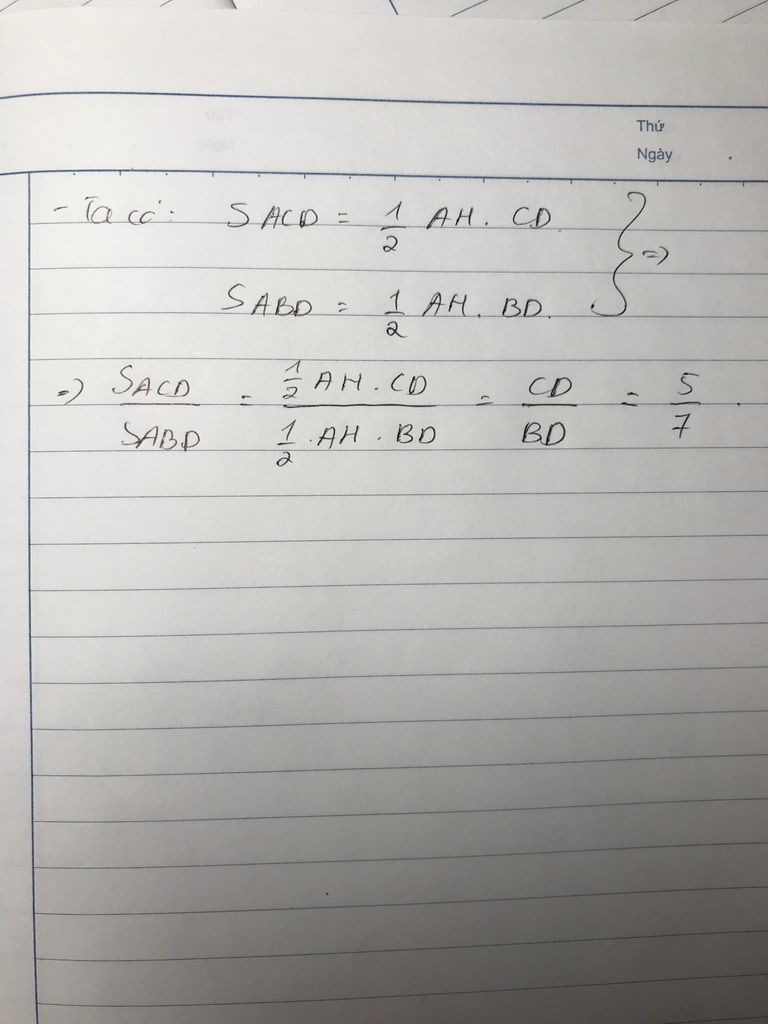 Thứ
Ngày
- Ta có: SACD = 1/2 AH . CD.
SABD = 1/2 AH . BD. } =>
=> SACD/SABD = (1/2 AH . CD)/(1/2 . AH . BD) = CD/BD = 5/7.